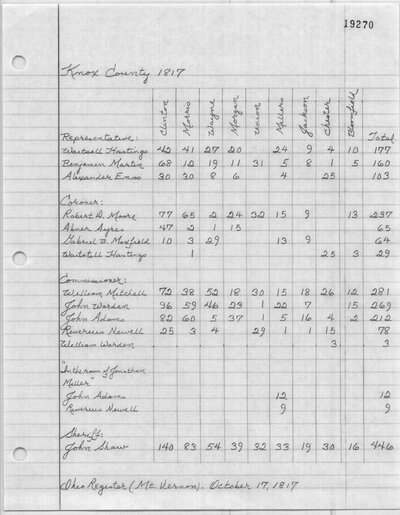 19270
Knox County 1817
Clinton Morris Wayne Morgan Union Millers Jackson Chester Bloomfield Total
Representative:
Waitsall Hastings 42 41 27 20 24 9 4 10 177
Benjamin Martin 68 12 19 11 31 5 8 1 5 160
Alexander Enos 30 30 8 6 4 25 103
Coroner:
Robert D. Moore 77 65 2 24 32 15 9 13 237
Abner Ayres 47 2 1 15 65
Gabriel B. Maxfield 10 3 29 13 9 64
Waitstall Hastings 1 25 3 29
Commissioner:
William Mitchell 72 38 52 18 30 15 18 26 12 281
John Warden 96 59 46 23 1 22 7 15 269
John Adams 82 60 5 37 1 5 16 4 2 212
Riverius Newell 25 3 4 29 1 1 15 78
William Worden 3 3
"In the room of Jonathan
Miller"
John Adams 12 12
Riverius Newell 9 9
Sheriff:
John Shaw 140 83 54 39 32 33 19 30 16 446
Ohio Register (Mt. Vernon). October 17, 1817